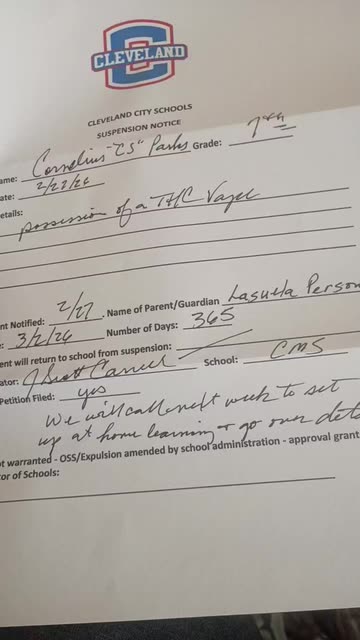 CLEVELAND
CLEVELAND CITY SCHOOLS
SUSPENSION NOTICE
ame: Cornelius "CJ" Parks Grade: 7th
ate: 2/27/26
etails:
possession of a THC Vape
nt Notified: 2/27. Name of Parent/Guardian Lasuela Person
e: 3/2/26 Number of Days: 365
ent will return to school from suspension:
ator: J Scott School: CMS
Petition Filed: yes
We will call next week to set
up at home learning + go over deta
ot warranted - OSS/Expulsion amended by school administration - approval grant
tor of Schools: